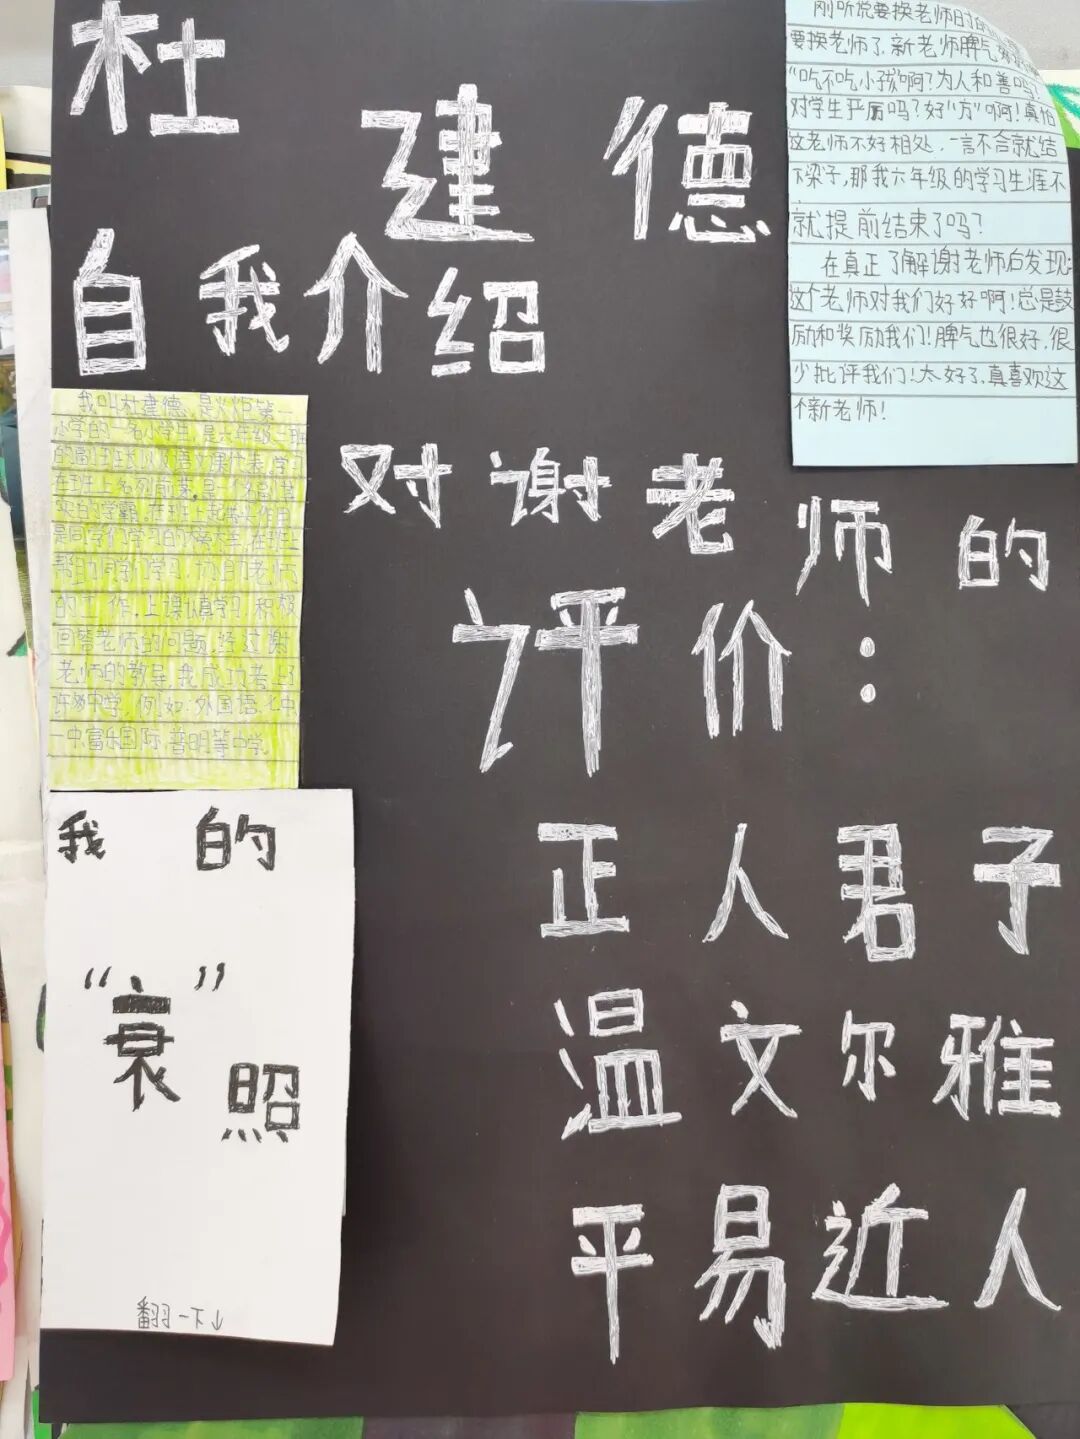 杜建德
自我介绍
刚听说要换老师时
要换老师了，新老师脾气
“吃不吃小孩”啊？为人和善吗？
对学生严厉吗？好“方”啊！真怕
这老师不好相处，一言不合就结
下梁子，那我六年级的学习生涯不
就提前结束了吗？
在真正了解谢老师后发现：
这个老师对我们好好啊！总是鼓
励和奖励我们！脾气也很好，很
少批评我们！太好了，真喜欢这
个新老师！
我叫杜建德，是火炬第二
小学的一名小学生，是六年级二班
的副班长以及语文课代表，学习
在班上名列前茅，是一名副其
实的学霸，在班上起带头作用，
是同学们学习的大帮手，在班上
帮助同学们学习，协助老师
的工作，上课认真学习，积极
回答老师的问题，经过谢
老师的教导，我成功考上了
许多中学，例如：外国语、七中
一中、富乐国际、普明等中学。
对谢老师的
评价：
正人君子
温文尔雅
平易近人
我的
“衰”
照
翻一下↓